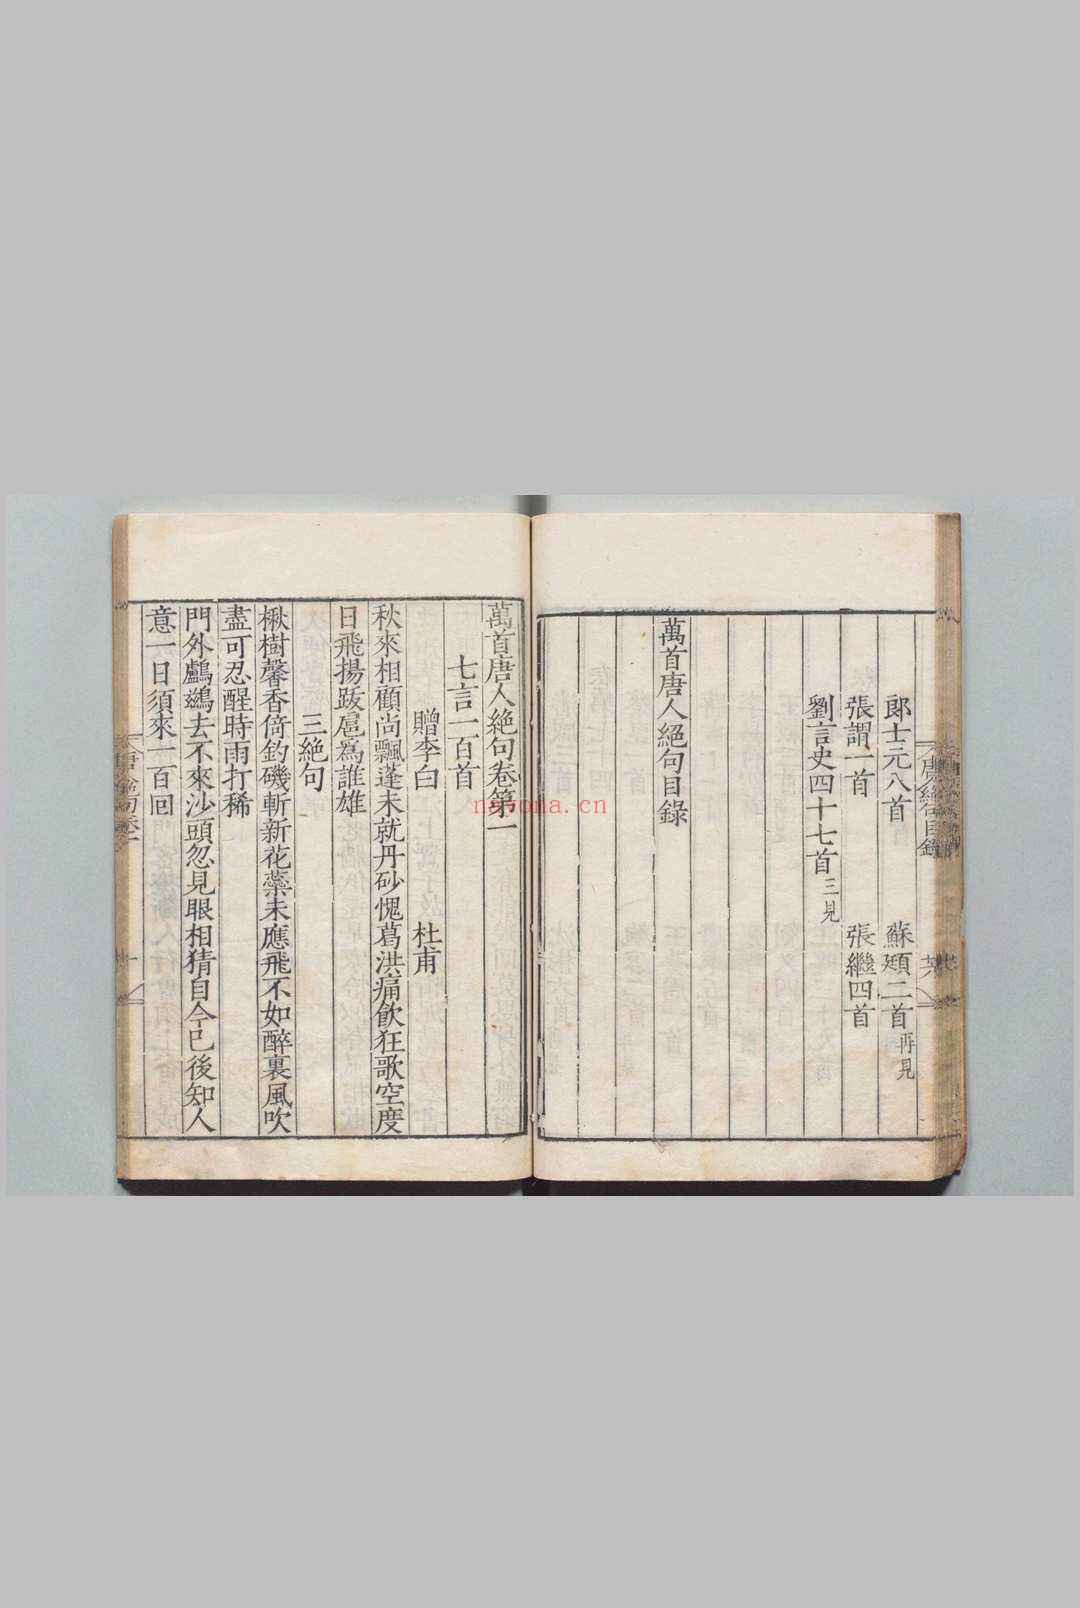 郎士元八首 蘇頲二首再見
張謂一首 張繼四首
劉言史四十七首三見
萬首唐人絕句目錄
萬首唐人絕句卷第一
七言一百首
贈李白 杜甫
秋來相顧尚飄蓬未就丹砂愧葛洪痛飲狂歌空度
日飛揚跋扈為誰雄
三絕句
楸樹馨香倚釣磯斬新花蘂未應飛不如醉裏風吹
盡可忍醒時雨打稀
門外鸕鷀去不來沙頭忽見眼相猜自今已後知人
意一日須來一百回
nayona.cn